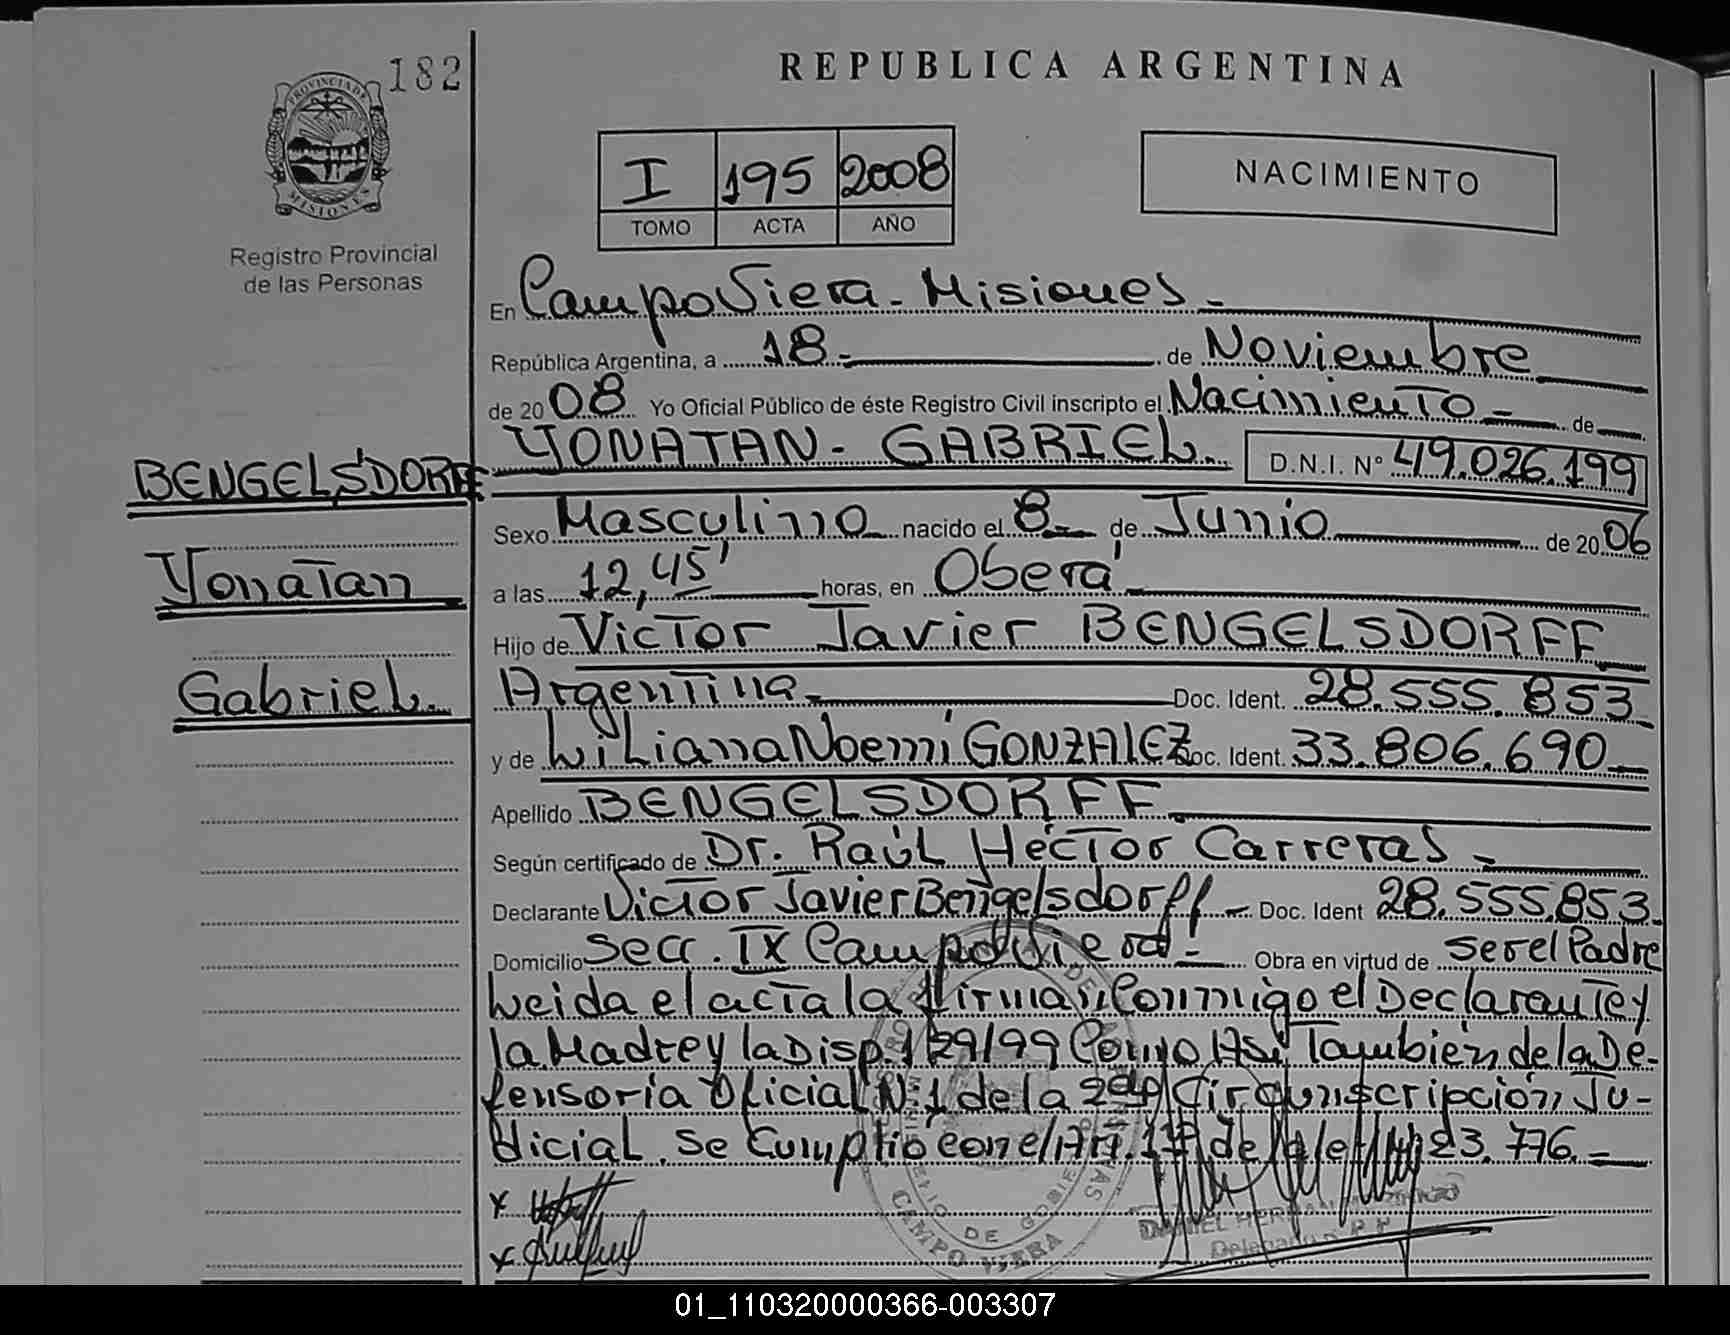 182
PROVINCIA DE
MISIONES
Registro Provincial
de las Personas
REPUBLICA ARGENTINA
I 195 2008
TOMO ACTA AÑO
NACIMIENTO
En Campo Viera - Misiones -
República Argentina, a 18.- de Noviembre
de 2008 Yo Oficial Público de éste Registro Civil inscripto el Nacimiento - de
YONATAN - GABRIEL. D.N.I. Nº 49.026.199
BENGELSDORFF
Yonatan
Gabriel.
Sexo Masculino nacido el 8 - de Junio de 2006
a las 12,45' horas, en Oberá
Hijo de Victor Javier BENGELSDORFF
Argentina - Doc. Ident. 28.555.853
y de Liliana Noemí GONZALEZ Doc. Ident. 33.806.690
Apellido BENGELSDORFF
Según certificado de Dr. Raúl Héctor Carreras -
Declarante Victor Javier Bengelsdorff - Doc. Ident 28.555.853
Domicilio Secc. IX Campo Viera - Obra en virtud de ser el Padre
Leida el acta la firman Conmigo el Declarante y
la Madre y la Disp. 1/29/99 Como Así También de la De-
fensoría Oficial N. 1 de la 2da Circunscripción Ju-
dicial. Se Cumplió con el Art. 17 de la ley 23.776. -
DE
CAMPO VIERA
DANIEL HERNAN
Delegado R.P.P.
01_110320000366-003307